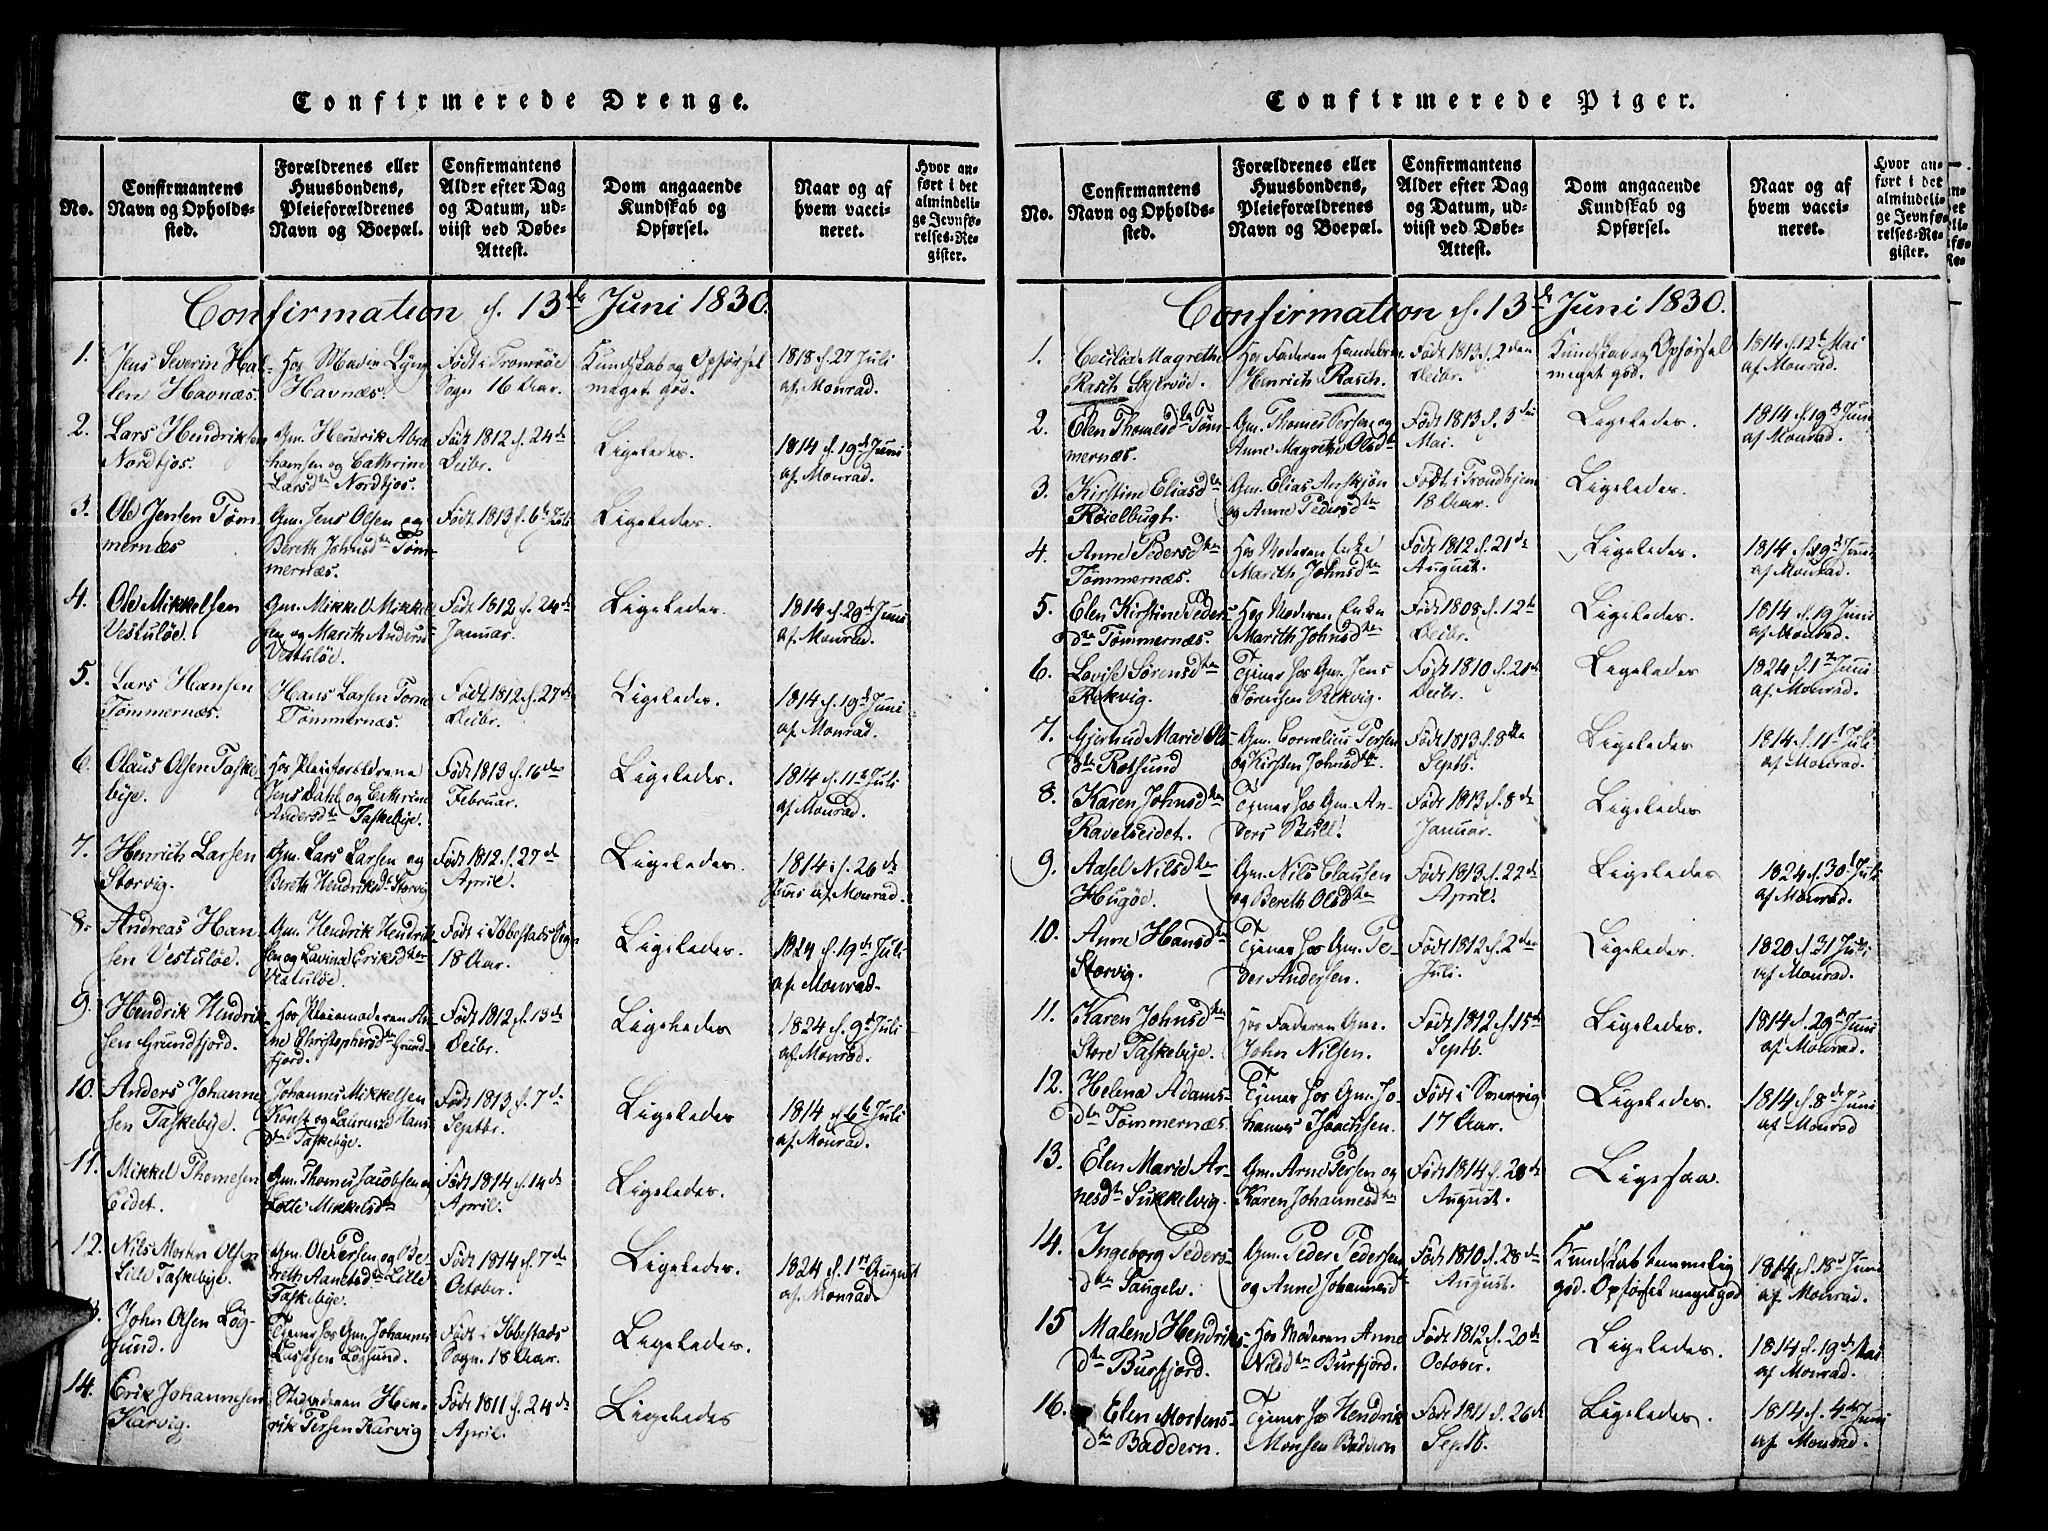 Confirmerede Drenge.
No.
Confirmantens
Navn og Opholds-
sted.
Forældrenes eller
Huusbondens,
Pleieforældrenes
Navn og Boepæl.
Confirmantens
Alder efter Dag
og Datum, ud-
viist ved Døbe-
Attest.
Dom angaaende
Kundskab og
Opførsel.
Naar og af
hvem vacci-
neret.
Hvor an-
ført i det
almindeli-
ge Jevnfø-
relses-Re-
gister.
Confirmation d. 13de Juni 1830.
1.
Jens Severin Hal-
len Havnæs.
Hos Madm Lyng
Havnæs.
Født i Tromsøe
Sogn 16 Aar.
Kundskab og Opførsel
meget god.
1818 d. 27 Juli
af Monrad.
2.
Lars Hendriksen
Nordkjos.
Gm. Hendrik Abra
hamsen og Cathrine
Larsdtr Nordkjos.
Født 1812 d. 24de
Decbr.
Ligeledes.
1814 d. 19de Juni
af Monrad.
3.
Ole Jensen Tøm
mernæs
Gm. Jens Olsen og
Bereth Johnsdtr Tøm-
mernæs.
Født 1813 d. 6te Juli
Ligeledes.
4.
Ole Mikkelsen
Vestuløe.
Gm. Mikkel Mikkel
sen og Marith Andersd
Vestuløe.
Født 1812 d. 24de
Januar.
Ligeledes.
1814 d. 29de Juni
af Monrad.
5.
Lars Hansen
Tømmernæs.
Hans Larsen Torne
Tømmernæs.
Født 1812 d. 27de
Decbr.
Ligeledes.
1814 d. 19de Juni
af Monrad.
6.
Claus Olsen Taske
bye.
Hos Pleieforældrene
Jens Dahl og Cathrine
Andersdtr Taskebye.
Født 1813 d. 16de
Februar.
Ligeledes.
1814 d. 11te Juli
af Monrad.
7.
Henrich Larsen
Storvig.
Gm. Lars Larsen og
Bereth Hendriksd Storvig
Født 1812 d. 27de
April.
Ligeledes.
1814 d. 26de
Juni af Monrad.
8.
Andreas Han
sen Vestuløe.
Gm. Hendrik Hendrik
sen og Lavina Eriksdtr
Vestuløe.
Født i Ibbestads Sogn
18 Aar.
Ligeledes.
1824 d. 19de Juli
af Monrad.
9.
Hendrik Hendrik
sen Grundfjord.
Hos Pleiemoderen An
ne Christophersdtr Grund-
fjord.
Født 1812 d. 13de
Decbr.
Ligeledes
1824 d. 9de Juli
af Monrad.
10.
Anders Johanne
sen Taskebye.
Johannes Mikkelsen
og Hans
dtr Taskebye.
Født 1813 d. 7de
Septbr.
Ligeledes
1814 d. 6te Juli
af Monrad.
11.
Mikkel Thomesen
Eidet.
Gm. Thomes Jacobsen og
Lotte Mikkelsdtr
Født 1814 d. 14de
April.
Ligeledes.
12.
Nils Morten Olsen
Lille Taskebye.
Gm. Ole Persen og Be-
reth Lille
Taskebye.
Født 1814 d. 7de
October.
Ligeledes.
1824 d. 1ste August
af Monrad.
13.
John Olsen Løg-
sund.
Tjener hos Gm. Johannes
Lassesen Løgsund.
Født i Ibbestads
Sogn. 18 Aar.
Ligeledes.
14.
Erik Johannesen
Karvig.
Stedfaderen Hen-
rik Persen Karvig
Født 1811 d. 24de
April.
Ligeledes
Confirmerede Piger.
No.
Confirmantens
Navn og Opholds-
sted.
Forældrenes eller
Huusbondens,
Pleieforældrenes
Navn og Boepæl.
Confirmantens
Alder efter Dag
og Datum, ud-
viist ved Døbe-
Attest.
Dom angaaende
Kundskab og
Opførsel.
Naar og af
hvem vacci-
neret.
Hvor an-
ført i det
almindeli-
ge Jevnfø-
relses-Re-
gister.
Confirmation d. 13de Juni 1830.
1.
Cecilia Magrethe
Rasch Skjervøe.
Hos Faderen
Henrich Rasch.
Født 1813 d. 2den
Decbr.
Kundskab og Opførsel
meget god.
1814 d. 12te Mai
af Monrad.
2.
Elen Thomesdtr Tøm
mernæs.
Gm. Thomes Persen og
Anne Magrethe Olsdtr
Født 1813 d. 3die
Mai.
Ligeledes.
1814 d. 19de Juni
af Monrad.
3.
Kirstine Eliasdtr
Røielbugt.
Gm. Elias Anskjøn
og Anne Pedersdtr
Født i Trondhjem
18 Aar.
Ligeledes.
4.
Anne Pedersdtr
Tømmernæs.
Hos Moderen Enke
Marith Johnsdtr
Født 1812 d. 21de
August.
Ligeledes.
1814 d. 19de Juni
af Monrad.
5.
Elen Kirstine Peders
dtr Tømmernæs.
Hos Moderen Enke
Marith Johnsdtr
Født 1808 d. 12te
Decbr.
Ligeledes.
1814 d. 19 Juni
af Monrad.
6.
Lovise Sørensdtr
Rekvig.
Tjener hos Gm. Jens
Sørensen Rekvig.
Født 1810 d. 21de
Decbr.
Ligeledes
1824 d. 1ste Juni
af Monrad.
7.
Gjertrud Marie
dtr Rotsund
Gm. Cornelius Persen
og Kirsten Johnsdtr.
Født 1813 d. 8de
Septb.
Ligeledes
1814 d. 11te Juli
af Monrad.
8.
Karen Johnsdtr
Ravelseidet.
Tjener hos Gm. An
ders Bull.
Født 1813 d. 8de
Januar.
Ligeledes
9.
Adsel Nilsdtr
Hugøe.
Gm. Nils Clausen
og Bereth Olsdtr
Født 1813 d. 22de
April.
Ligeledes
1824 d. 30te Juli
af Monrad.
10.
Anne Hansdtr
Storvig.
Tjener hos Gm. Pe-
der Andersen.
Født 1812 d. 2den
Juli.
Ligeledes.
1820 d. 31 Juli.
af Monrad.
11.
Karen Johnsdtr
Store Taskebye.
Hos Faderen Gm.
John Nilsen.
Født 1812 d. 15de
Septb.
Ligeledes.
1814 d. 29de Juni
af Monrad.
12.
Helena Adams-
dtr Tømmernæs.
Tjener hos Gm. Jo-
hannes Isaachsen.
Født i
17 Aar.
Ligeledes.
1814 d. 8de Juni
af Monrad
13.
Elen Marie Ar-
nesdtr Sukkelvig.
Gm. Arne Persen og
Karen Johannesdtr
Født 1814 d. 20de
August.
Ligesaa.
14.
Ingeborg Peders-
dtr Sangelv.
Gm. Peder Pedersen
og Anne Johannesd
Født 1810 d. 28de
August.
Kundskab temmelig
god. Opførsel meget god
1814 d. 18de Juni
af Monrad.
15
Malene Hendriks-
dtr Burfjord.
Hos Moderen Anne
Nilsdtr Burfjord.
Født 1812 d. 20de
October.
Ligeledes.
1814 d. 19de Mai
af Monrad.
16.
Elen Mortens-
dtr Baddern.
Tjener hos Hendrik
Monsen Baddern
Født 1811 d. 26de
Septb.
Ligeledes.
1814 d. 4de Juni
af Monrad.